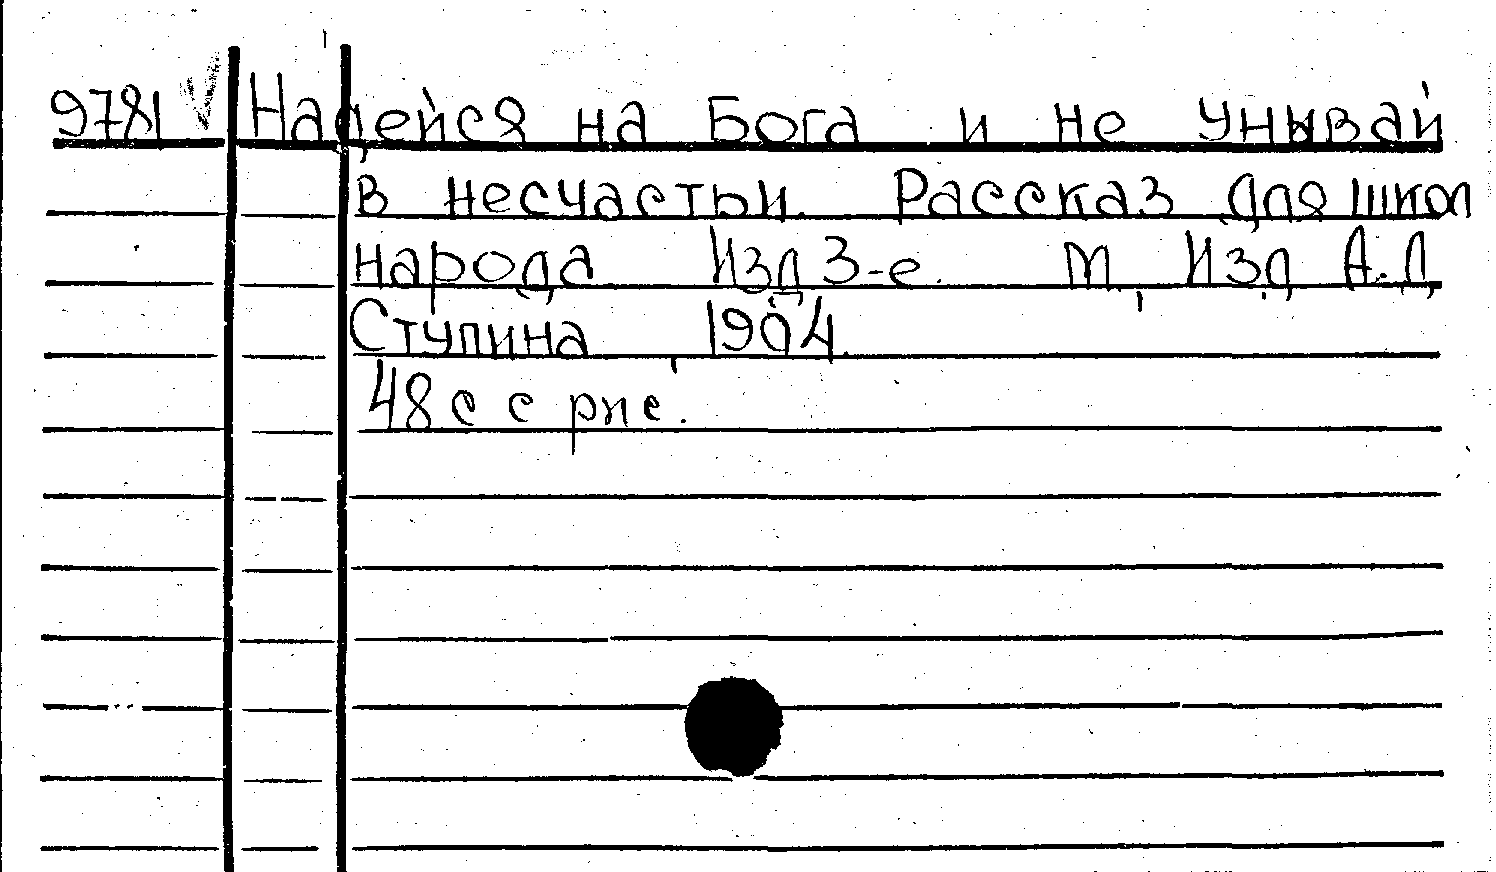 9781 Надейся на Бога и не унывай
в несчастьи. Рассказ для школ
народа Изд 3-е. М, Изд А.Д
Ступина, 1904.
48 с с рис.